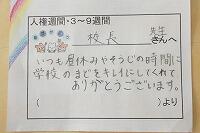 人権週間・3~9週間
校長 先生
さんへ
いつも昼休みやそうじの時間に
学校のまどをキレイにしてくれて
ありがとうございます。
( )より